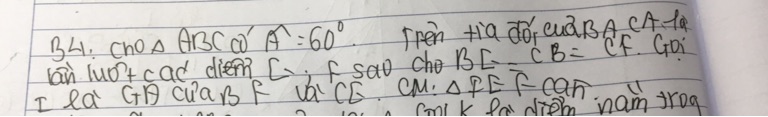 B4: cho △ ABC có Â = 60⁰. Trên tia đối của BA, CA lấy
lần lượt các điểm E, F sao cho BE = CB = CF. Gọi
I là GĐ của BF và CE. CM: △ IEF cân
Gọi K là điểm nằm trog